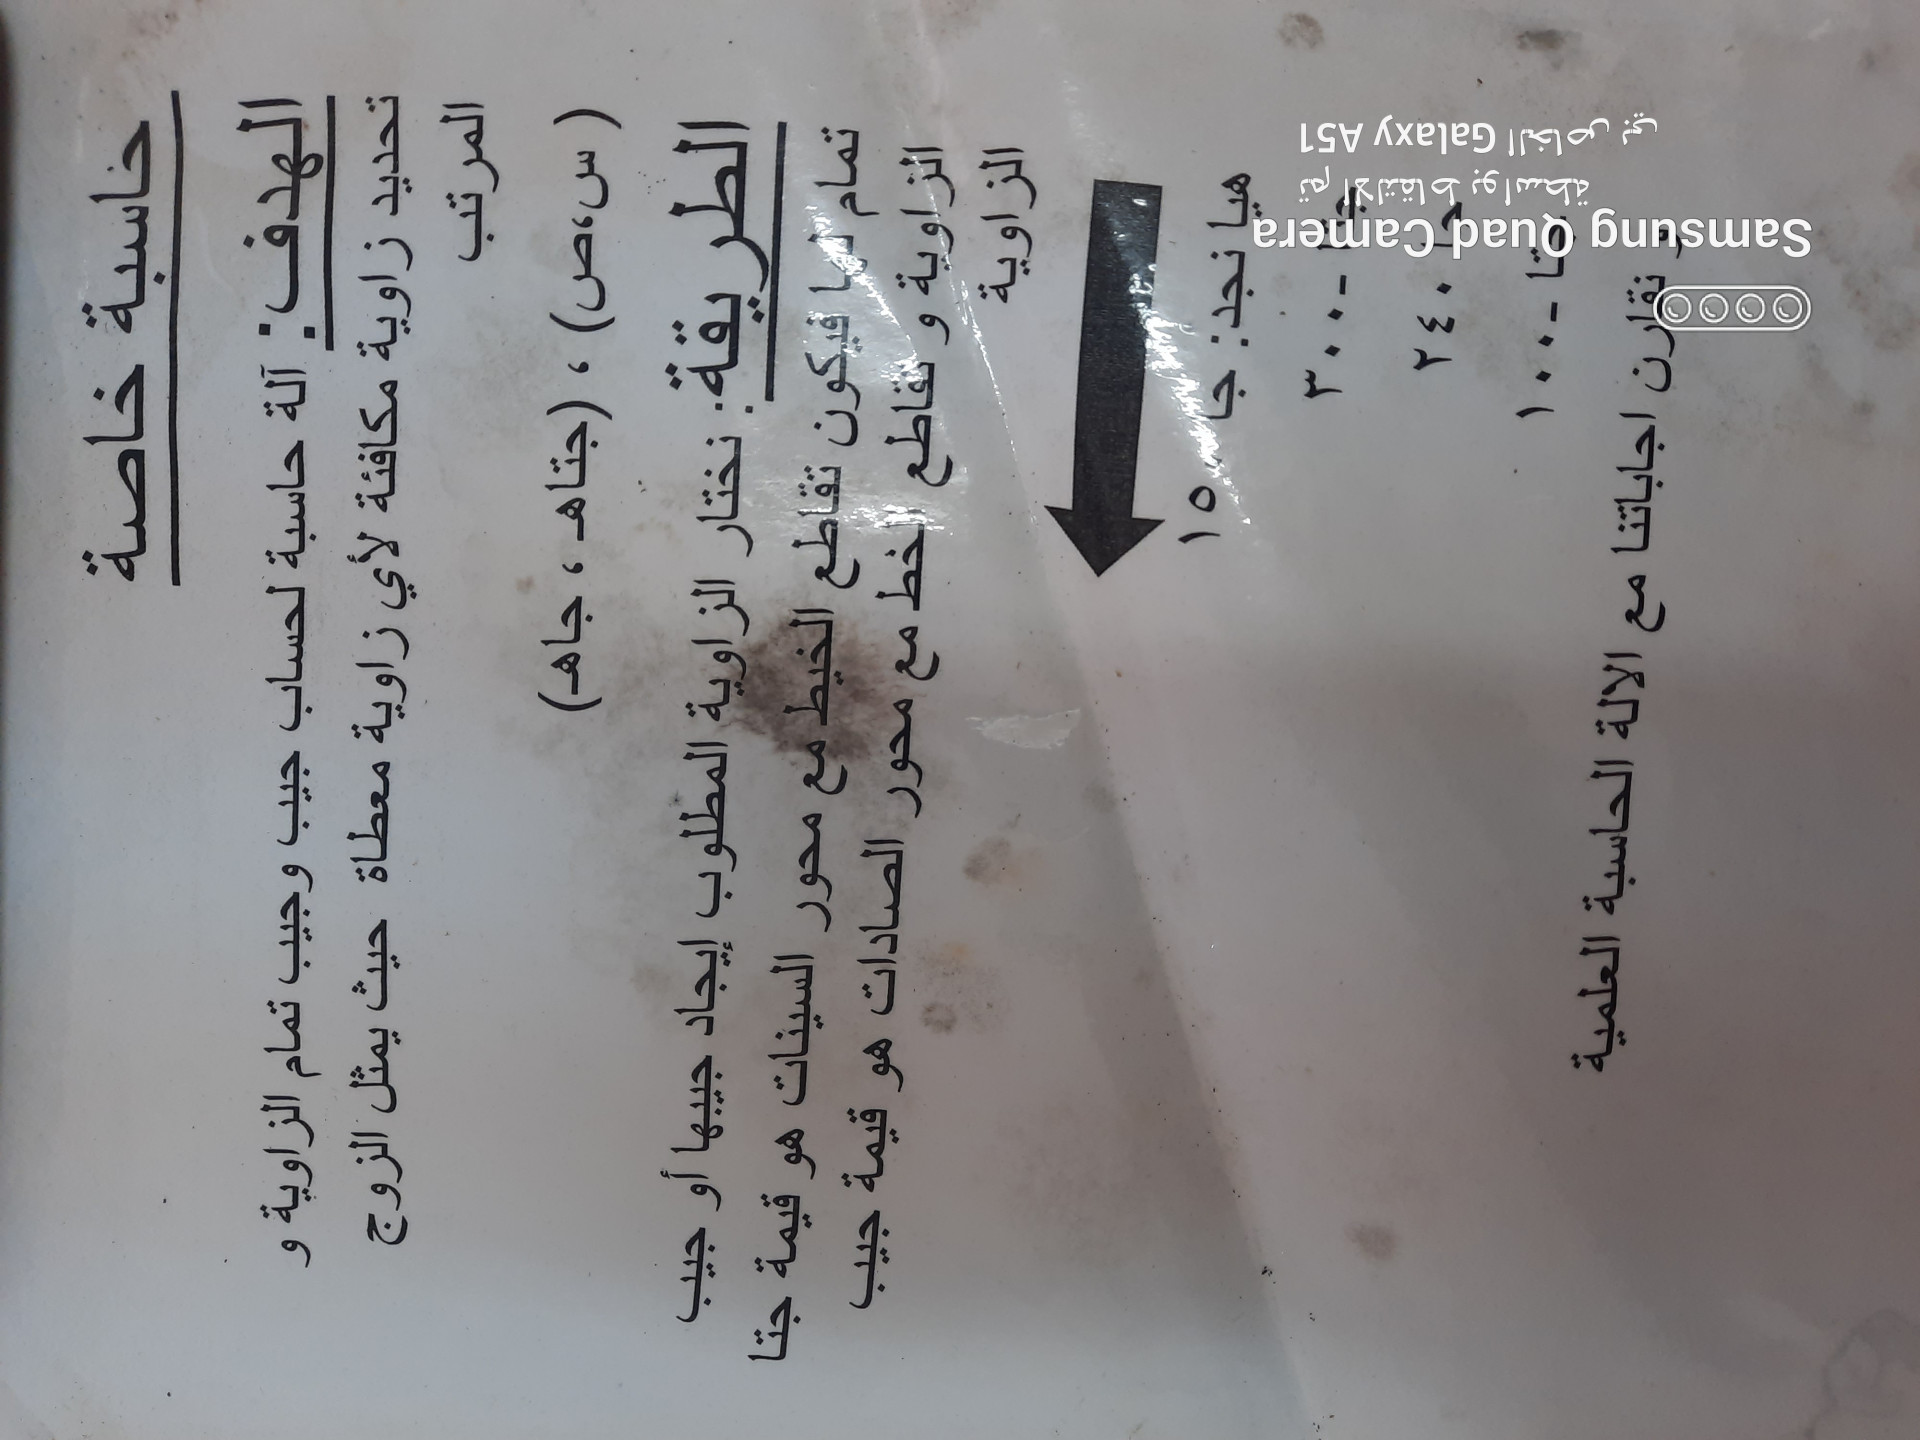 خاسبة خاصة
الهدف: آلة حاسبة لحساب جيب وجيب تمام الزاوية و
تحديد زاوية مكافئة لأي زاوية معطاة حيث يمثل الزوج
المرتب
( س،ص) ، (جتاهـ ، جاهـ)
الطريقة: نختار الزاوية المطلوب إيجاد جيبها أو جيب
تمام لها فيكون تقاطع الخيط مع محور السينات هو قيمة جتا
الزاوية و تقاطع الخط مع محور الصادات هو قيمة جيب
الزاوية
هيا نجد: جا ١٥٠
جتا -٣٠٠
جا ٢٤٠
جتا -١٠٠
و نقارن اجاباتنا مع الالة الحاسبة العلمية
Samsung Quad Camera
تم الالتقاط بواسطة
Galaxy A51 الخاص بي